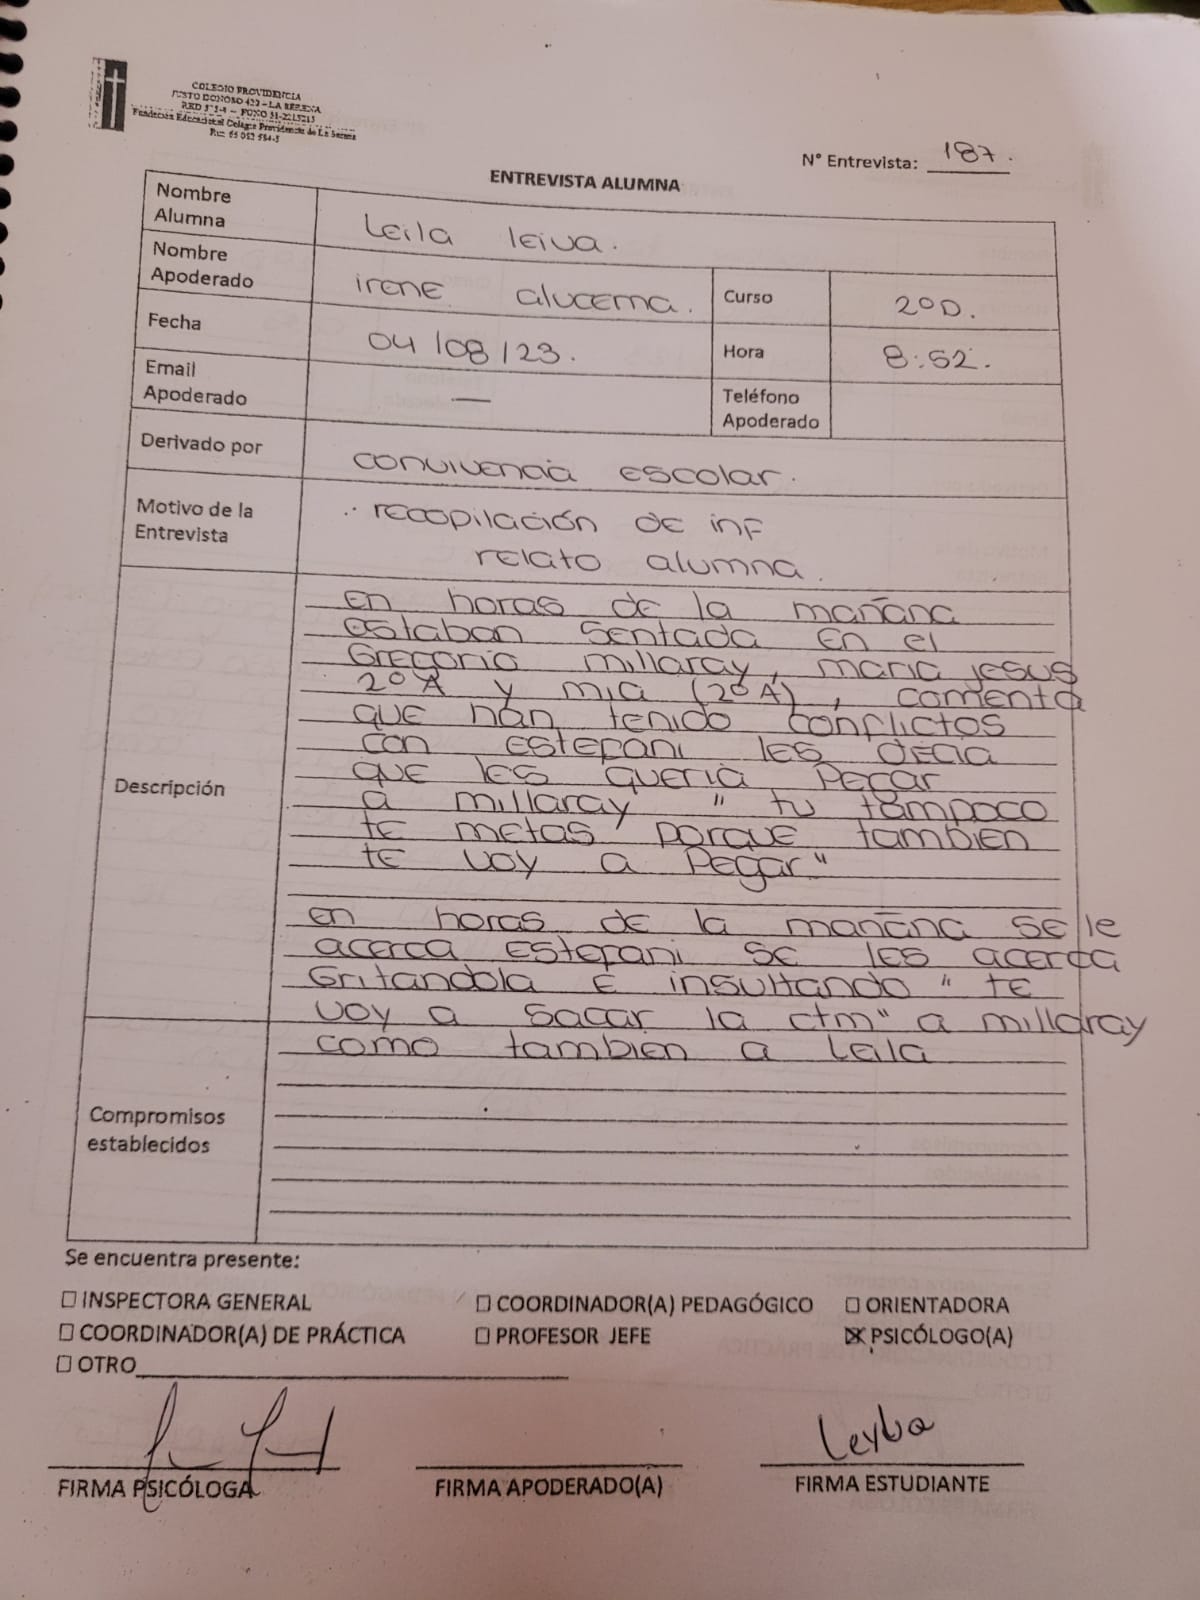 COLEGIO PROVIDENCIA
JUSTO DONOSO 422 – LA SERENA
Fundación Educacional Colegio Providencia de La Serena
N° Entrevista: 187.
ENTREVISTA ALUMNA
Nombre Alumna
Leila leiva.
Nombre Apoderado
irene alucema.
Curso
2°D.
Fecha
04/08/23.
Hora
8:52.
Email Apoderado
—
Teléfono Apoderado
Derivado por
convivencia escolar.
Motivo de la Entrevista
recopilación de inf
relato alumna.
Descripción
en horas de la mañana
estaban sentada en el
Gregorio millaray, maria jesus
2°A y mia (2°A), comenta
que han tenido conflictos
con estefani les decia
que les queria pegar
a millaray " tu tampoco
te metas porque tambien
te voy a pegar"
en horas de la mañana se le
acerca estefani se les acerca
Gritandola e insultando " te
voy a sacar la ctm" a millaray
como tambien a Leila
Compromisos establecidos
Se encuentra presente:
☐ INSPECTORA GENERAL ☐ COORDINADOR(A) PEDAGÓGICO ☐ ORIENTADORA
☐ COORDINADOR(A) DE PRÁCTICA ☐ PROFESOR JEFE ☒ PSICÓLOGO(A)
☐ OTRO
Leyba
FIRMA PSICÓLOGA FIRMA APODERADO(A) FIRMA ESTUDIANTE